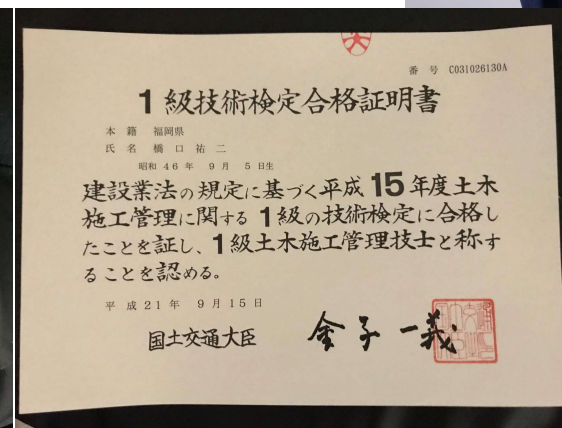 番 号 C031026130A
1 級技術検定合格証明書
本 籍 福岡県
氏 名 橋 口 祐 二
昭和 46 年 9 月 5 日生
建設業法の規定に基づく平成 15 年度土木
施工管理に関する 1 級の技術検定に合格し
たことを証し、1 級土木施工管理技士と称す
ることを認める。
平 成 21 年 9 月 15 日
国土交通大臣 金子 一義